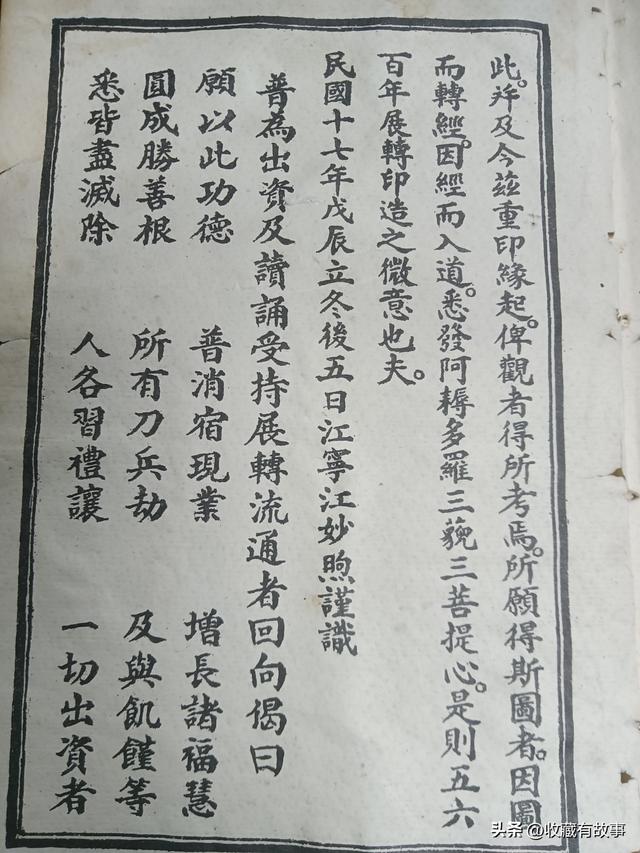 此。并及今茲重印緣起。俾觀者得所考焉。所願得斯圖者。因圖
而轉經。因經而入道。悉發阿耨多羅三藐三菩提心。是則五六
百年展轉印造之微意也夫。
民國十七年戊辰立冬後五日江寧江妙煦謹識
普為出資及讀誦受持展轉流通者回向偈曰
願以此功德 普消宿現業 增長諸福慧
圓成勝善根 所有刀兵劫 及與飢饉等
悉皆盡滅除 人各習禮讓 一切出資者
头条 @收藏有故事